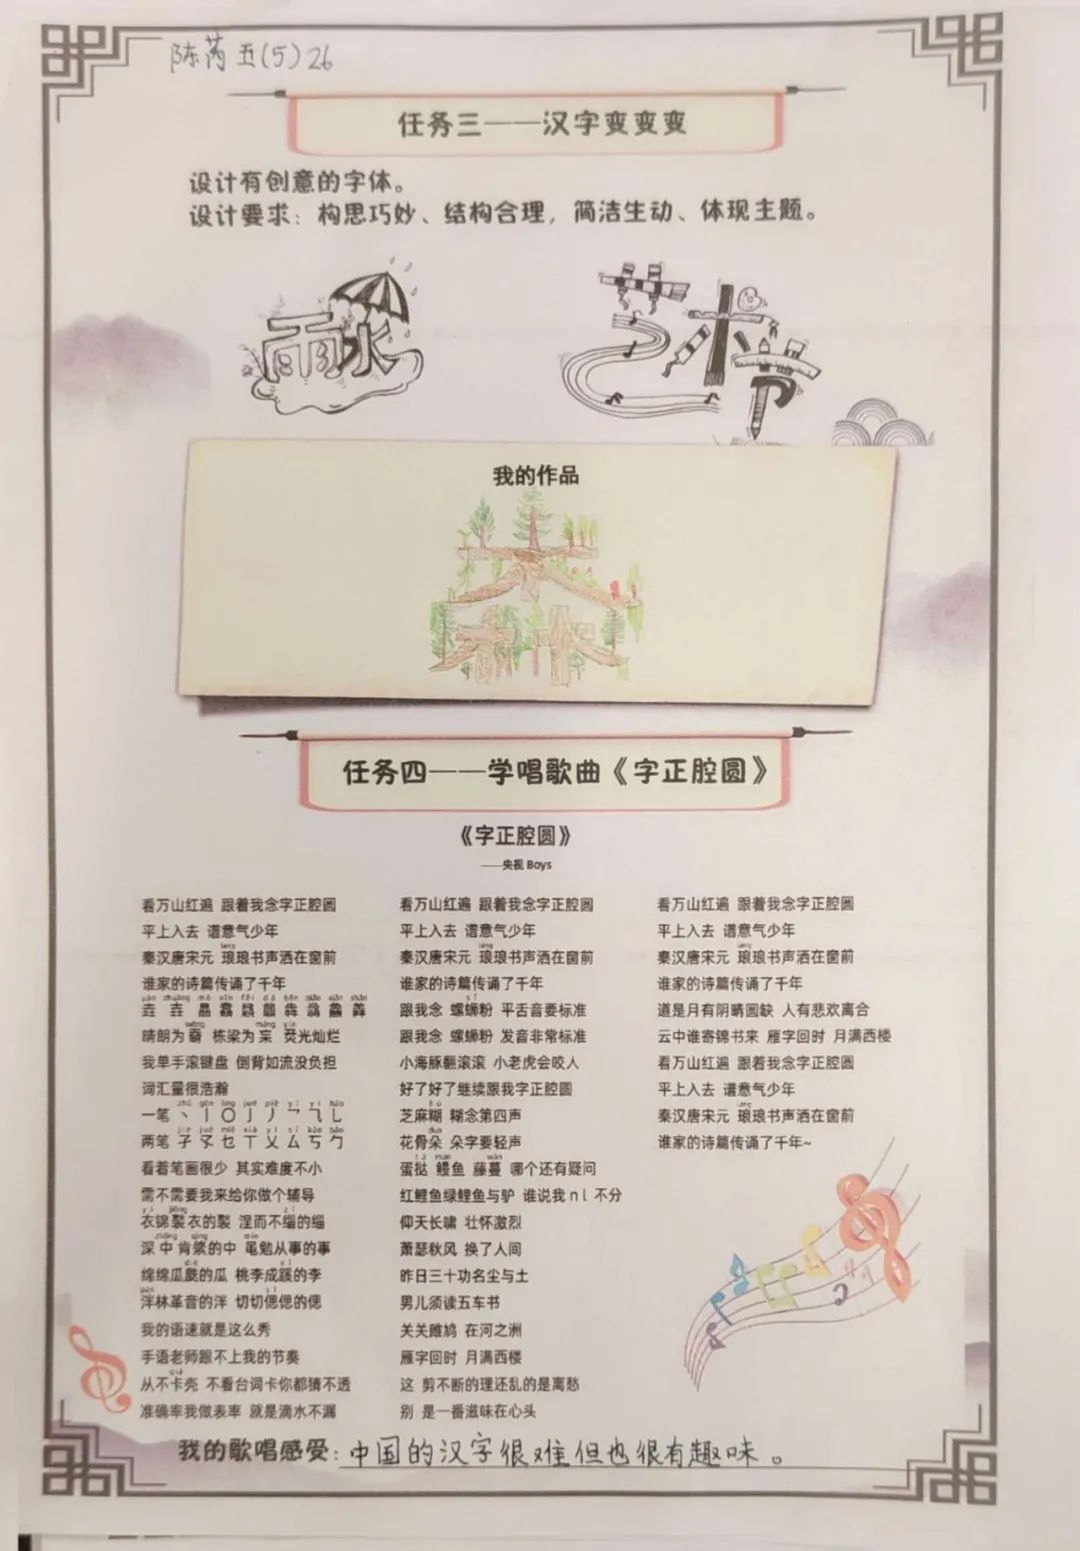 陈芮 五(5)26
任务三——汉字变变变
设计有创意的字体。
设计要求：构思巧妙、结构合理，简洁生动、体现主题。
雨水
艺术节
我的作品
森
任务四——学唱歌曲《字正腔圆》
《字正腔圆》
——央视 Boys
看万山红遍 跟着我念字正腔圆
平上入去 谱意气少年
láng
秦汉唐宋元 琅琅书声洒在窗前
谁家的诗篇传诵了千年
yáo zhuàng mò xīn fēi dá bēn xiān shān
垚 馫 飝 龘 犇 鱻 羴
wěng máng yíng
晴朗为奣 栋梁为杗 荧光灿烂
我单手滚键盘 倒背如流没负担
词汇量很浩瀚
zhǔ gǔn líng jué piě yǐ yǐ háo
一笔 丶 丨 〇 亅 丿 乛 ⺄ 乚
jié jué miē xià yì sī kǎo bāo
两笔 孑 孓 乜 丅 乂 厶 丂 勹
看着笔画很少 其实难度不小
需不需要我来给你做个辅导
yì jiǒng zī
衣锦褧衣的褧 涅而不缁的缁
zhòng qìng mǐn
深中肯綮的中 黾勉从事的事
dié xī
绵绵瓜瓞的瓜 桃李成蹊的李
pàn sī
泮林革音的泮 切切偲偲的偲
我的语速就是这么秀
手语老师跟不上我的节奏
qiào
从不卡壳 不看台词卡你都猜不透
准确率我做表率 就是滴水不漏
看万山红遍 跟着我念字正腔圆
平上入去 谱意气少年
láng
秦汉唐宋元 琅琅书声洒在窗前
谁家的诗篇传诵了千年
sī
跟我念 螺蛳粉 平舌音要标准
跟我念 螺蛳粉 发音非常标准
小海豚翻滚滚 小老虎会咬人
好了好了继续跟我字正腔圆
hù
芝麻糊 糊念第四声
duo
花骨朵 朵字要轻声
tà mán wàn
蛋挞 鳗鱼 藤蔓 哪个还有疑问
红鲤鱼绿鲤鱼与驴 谁说我 n l 不分
仰天长啸 壮怀激烈
萧瑟秋风 换了人间
昨日三十功名尘与土
男儿须读五车书
关关雎鸠 在河之洲
雁字回时 月满西楼
这 剪不断的理还乱的是离愁
别 是一番滋味在心头
看万山红遍 跟着我念字正腔圆
平上入去 谱意气少年
láng
秦汉唐宋元 琅琅书声洒在窗前
谁家的诗篇传诵了千年
道是月有阴晴圆缺 人有悲欢离合
云中谁寄锦书来 雁字回时 月满西楼
看万山红遍 跟着我念字正腔圆
平上入去 谱意气少年
láng
秦汉唐宋元 琅琅书声洒在窗前
谁家的诗篇传诵了千年~
我的歌唱感受：中国的汉字很难但也很有趣味。